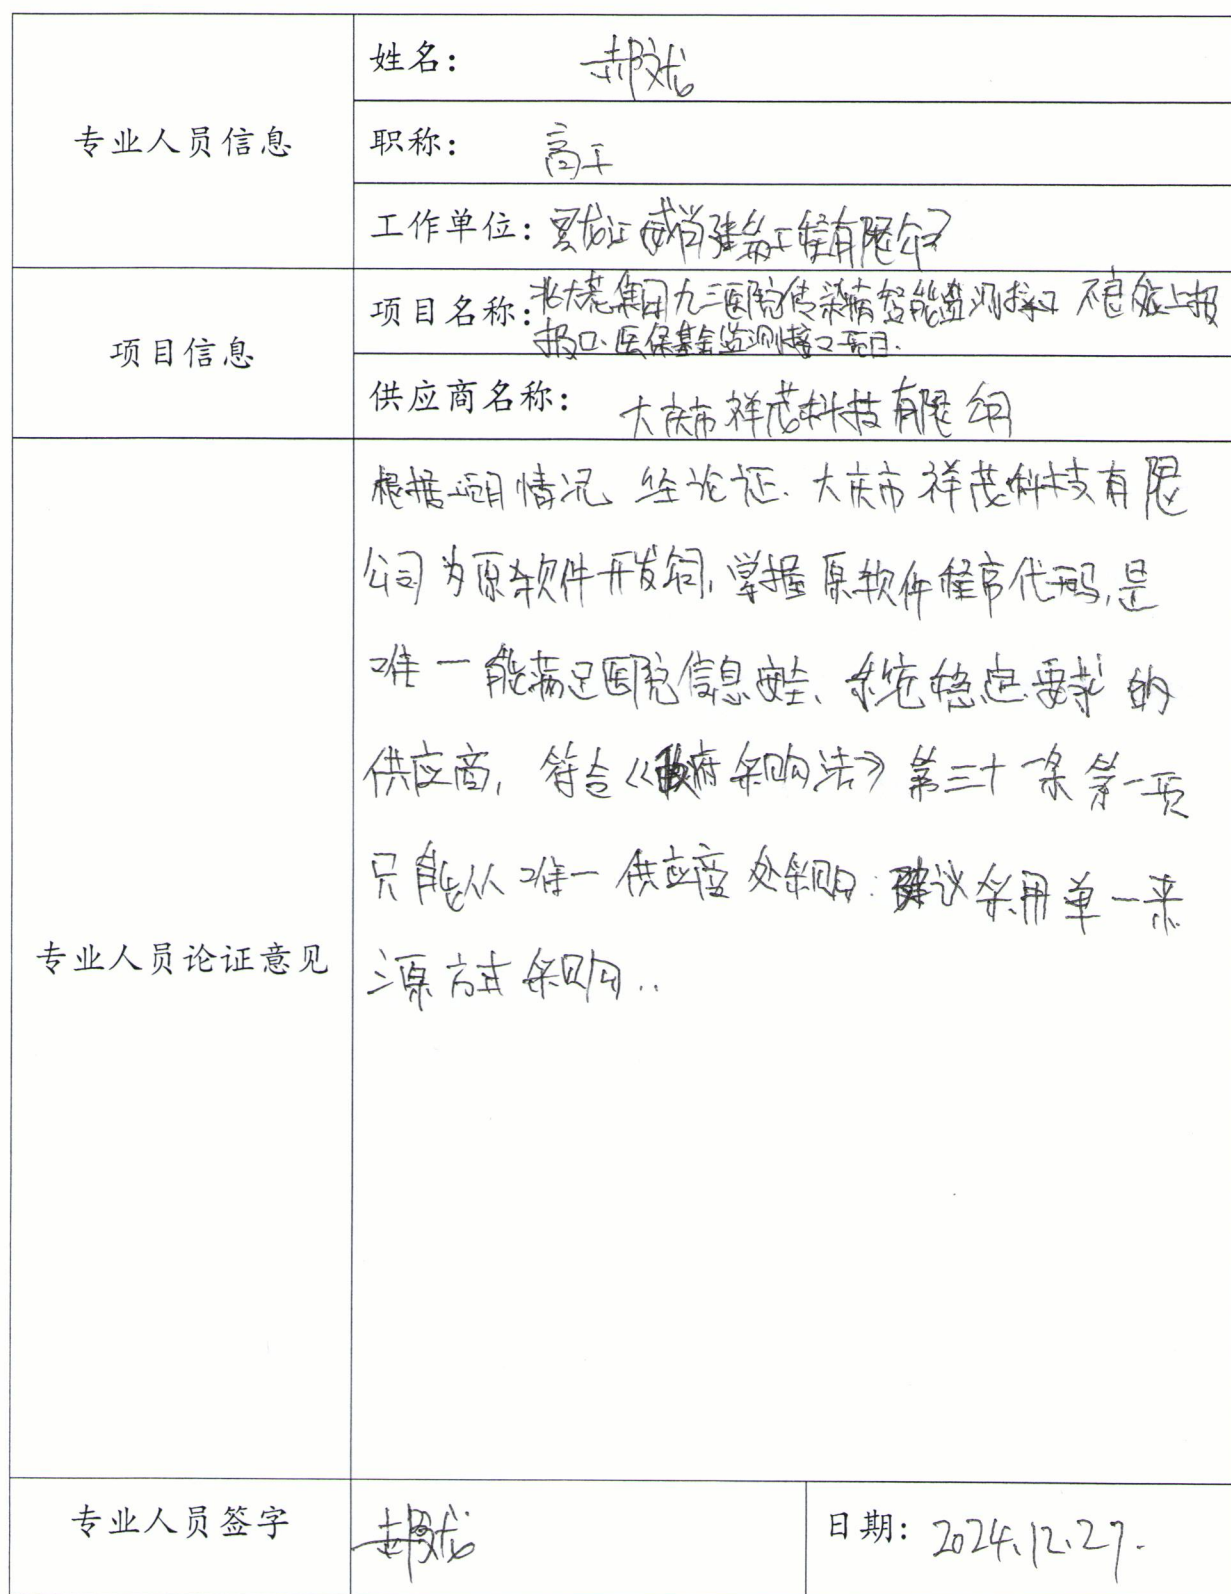 专业人员信息
姓名： 郝文龙
职称： 高工
工作单位：黑龙江威尚建筑工程有限公司
项目信息
项目名称：北大荒集团九三医院传染病智能监测接口 不良 上报
报口、医保基金监测接口项目.
供应商名称： 大庆市祥茂科技有限公司
专业人员论证意见
根据项目情况 经论证、大庆市祥茂科技有限
公司为原软件开发公司,掌握原软件程序代码,是
唯一能满足医院信息安全、系统稳定要求的
供应商, 符合《政府采购法》第三十一条第一项
只能从唯一供应商处采购: 建议采用单一来
源方式采购..
专业人员签字
郝文龙
日期：2024.12.27.